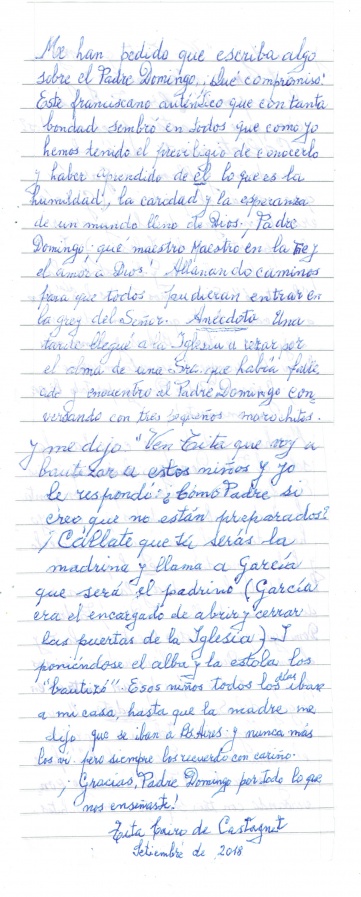 Me han pedido que escriba algo
sobre el Padre Domingo. ¡Qué compromiso!
Este franciscano auténtico que con tanta
bondad sembró en todos que como yo
hemos tenido el previlegio de conocerlo
y haber aprendido de él lo que es la
humildad, la caridad y la esperanza
de un mundo lleno de Dios. ¡Padre
Domingo, qué maestro Maestro en la Fe y
el amor a Dios! Allanando caminos
para que todos pudieran entrar en
la grey del Señor. Anécdota Una
tarde llegué a la Iglesia a rezar por
el alma de una Sra. que había falle
cido y encuentro al Padre Domingo con
versando con tres pequeños morochitos.
y me dijo "Ven Tita que voy a
bautizar a estos niños y yo
le respondo: ¿Cómo Padre si
creo que no están preparados?
¡Cállate que tú serás la
madrina y llama a García
que será el padrino (García
era el encargado de abrir y cerrar
las puertas de la Iglesia) I
poniéndose el alba y la estola los
"bautizó". Esos niños todos los días iban
a mi casa, hasta que la madre me
dijo que se iban a Bs Aires y nunca más
los vi pero siempre los recuerdo con cariño.
¡Gracias, Padre Domingo por todo lo que
nos enseñaste!
Tita de Castagnet
Setiembre de 2018